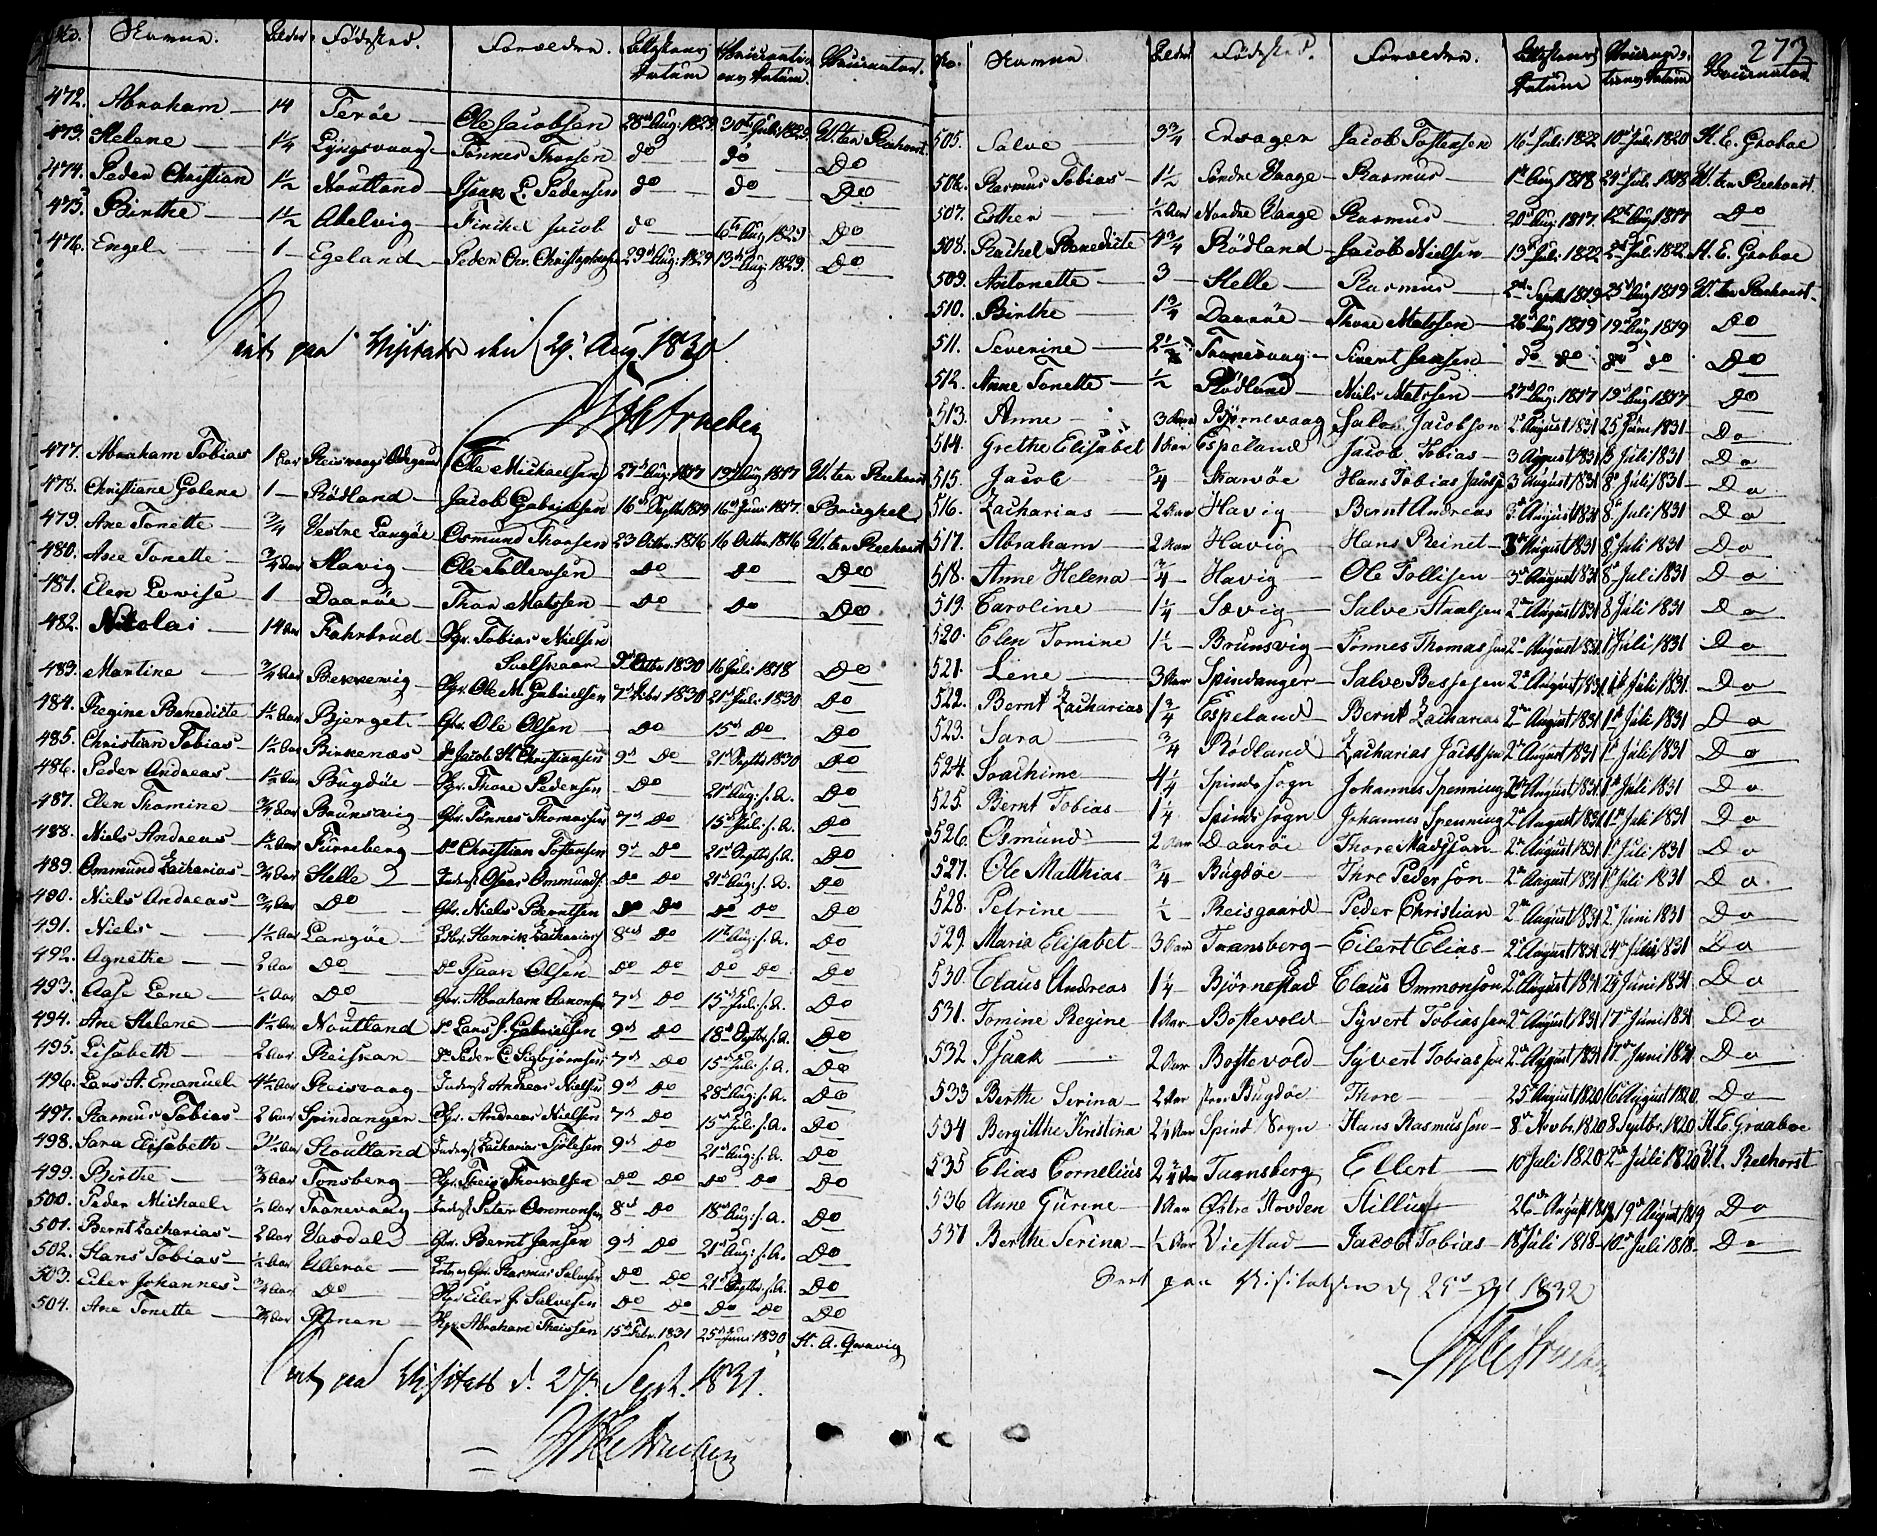 No. Navne. Alder Fødested. Forældre. Attestens Datum Vaccinationens Datum. Vaccinator.
472. Abraham — 14 Terøe — Ole Jacobsen 28de Aug: 1829 30te Juli 1829. W. ten Reehorst
473. Helene — 1¼ Lyngsvaag — Tønnes Thorsen do — do — Do
474. Peder Christian 1½ Noutland — Isaak L. Pedersen do — do — Do
475. Birthe — 1½ Abelvig — Jacob do — 6te Aug 1829 Do
476. Engel — 1 — Egeland — Peder Chr. Christophersen 29de Aug: 1829 13de Aug: 1829. Do
Seet paa Visitats den 29de Aug. 1830.
477. Abraham Tobias 1 Aar Ødegaard Ole Michaelsen 27de Aug: 1817 19de Aug 1817 W. ten Reehorst
478. Christiane Golene 1 — Rødland — Jacob Gabrielsen 16de Septb 1819 16de Juni 1817. Brieghel
479. Ane Tonette — ¾ Vestre Langøe — Osmund Thorsen 23 Octbr. 1816 16 Octbr. 1816 W. ten Reehorst
480. Ane Tonette — ¾ Aar Havig — Ole Tollevsen — Do — Do — Do
481. Elen Lovise — 1 — Daarøe — Thor Matssen — Do — Do — Do
482. Nicolai — 14 Aar Fahrbrud — Gbr. Tobias Nielsen
Octbr 1830 16 Juli 1818 Do
483. Martine — ¾ Aar Bekkevig — Gbr. Ole M. Gabrielsen 7de Febr. 1830 21de Juli. 1830 Do
484. Regine Benedicte 1½ Aar Bjerget — Gbr. Ole Olsen — Do — 15de Do — Do
485. Christian Tobias — 1½ Aar Birkenæs — Do Jacob H. Christiansen 9de Do — 21de Septbr 1830 Do
486. Peder Andreas — 1½ Aar Bugdøe — Gbr. Thore Pedersen — Do — 21de Aug: s. A. Do
487. Elen Thomine — ¾ Aar Brunsvig — Gbr. Tønnes Thomassen 7de Do — 15de Juli: s. A. Do
488. Niels Andreas — 1½ Aar Furreberg — Do Christian Tostensen 9de Do — 21de Septbr s. A. Do
489. Ommund Zacharias — ¾ Aar Helle — Inderst Ommunds. Do — Do 21de Aug: s. A. Do
490. Niels Andreas — ¾ Aar Do — Gbr. Niels Berntsen Do — Do — Do — Do Do
491. Niels — 1½ Aar Langøe — Henrik Zachariass 8de Do — 11te Aug: s. A. Do
492. Agnethe — Aar Do — Do Isaak Olsen — Do — Do — Do — Do Do
493. Aase Lene — ½ Aar Do — Gbr. Abraham Aanonsen 7de — Do 15de Juli: s. A. Do
494. Ane Helene — 1½ Aar Noutland Do Lars J. Gabrielsen 9de Do — 18de Septbr s. A. Do
495. Lisabeth — 2 Aar Reisvaan — Do Peder C. Sigbjørnsen 7de — Do 15de Juli: s. A. Do
496. Lars A. Emanuel 4½ Aar Reisvaag — Inderst Andreas Nielsen 9de — Do 28de Aug: s. A. Do
497. Rasmus Tobias — 2 Aar Spindanger — Gbr. Andreas Nielsen 7de — Do — 15de Juli: s. A. Do
498. Sara Elisabeth — 3½ Aar Stoutland Inderst Zacharias Tjølesen 9de — Do — 21de Aug: s. A. Do
499. Birthe — ¾ Aar Tonsberg — Gbr. Theis Thorkelsen Do — Do — Do — Do Do
500. Peder Michael — ½ Aar Tranevaag — Inderst Peter Ommonsen 8de — Do 18de Aug: s. A. Do
501. Bernt Zacharias — 2 Aar Vardal — Gbr. Bernt Jansen 9de Do — 21de Aug: s. A. Do
502. Hans Tobias — ½ Aar Ullerøe — Gbr. Rasmus Salvesen Do — Do 21de Septbr s. A. Do
503. Eiler Johannes — ¾ Aar Do — Gbr Eiler J. Salvesen Do — Do — Do — Do Do
504. Ane Tonette — ¾ Aar — Gbr. Abraham Theissen 15de Febr. 1831 25de Juni: 1830 H. A. Qvanvig
Seet paa Visitats d. 27de Sept. 1831.
277
No. Navne Alder Fødested. Forældre. Attestens Datum Vaccinationens Datum Vaccinator
505. Salve — 3¾ Ervager Jacob Tostensen 16de Juli 1822 10de Juli 1820 H. E. Graboe
506. Rasmus Tobias — 1½ Søndre Vaage — Rasmus — 1ste Aug 1818 24de Juli 1818 W. ten Reehorst.
507. Esther — ½ Aar Nordre Vaage Rasmus — 20de Aug. 1817 12te Aug 1817 Do
508. Rachel Benedicte 4¾ Rødland — Jacob Nielsen — 13de Juli 1822 2den Juli 1822 H. E. Graboe
509. Antonette — 3 — Helle — Rasmus — 2den Septb 1819 25de Aug 1819 W. ten Reehorst.
510. Birthe — 1¾ Daarøe — Thore Matssen — 26de Aug 1819 19de Aug 1819 Do
511. Severine — 2½ Tranevaag — Sivert Jansen — do do do do Do
512. Anne Tonette — ½ Rødland — Niels Matssen — 27de Aug: 1817 19de Aug: 1817 Do
513. Anne — 3 Aar Bjørnevaag Salve Jacobsen 2de August 1831 25 Juni 1831 — Do
514. Grethe Elisabet 1 Aar Espeland — Jacob Tobias — 3 August 1831 8 Juli 1831 — Do
515. Jacob — ¾ Skarvøe Hans Tobias Jacobsen 3 August 1831 8de Juli 1831 — Do
516. Zacharias — 2 Aar Havig — Bernt Andreas 3de August 1831 8de Juli 1831 Do
517. Abraham — 2 Aar Havig Hans Reinet — 3de August 1831 8de Juli 1831 Do
518. Anne Helena — ¾ — Havig — Ole Tollisen — 3de August 1831 8de Juli 1831 Do
519. Caroline — 1¼ — Sævig — Salve Staalsen 2den August 1831 8 Juli 1831 Do
520. Elen Tomine 1½ — Brunsvig — Tønnes Thomassen 2den August 1831 1 Juli 1831 Do
521. Lene — 3 Aar Spindanger — Salve Bessesen 2de August 1831 1ste Juli 1831. Do
522. Bernt Zacharias 1¾ Espeland — Bernt Zacharias 2den August 1831 1ste Juli 1831 Do
523. Sara — ¾ Rødland Zacharias Jacobsen 2den August 1831 1ste Juli 1831 Do
524. Joachime — 4¼ Spinds sogn Johannes Spenning 2den August 1831. 1ste Juli 1831 Do
525. Bernt Tobias — 1¼ Spinds sogn Johannes Spenning 2de August 1831 1ste Juli 1831 Do
526. Osmund — 2 Aar Daarøe — Thore Madssøn — 2den August 1831 1ste Juli 1831 Do
527. Ole Matthias ¾ — Bugdøe — Thore Pedersøn — 2den August 1831 1ste Juli 1831 Do
528. Petrine — ½ — Reisgaard — Peder Christian 2den August 1831 2de Juni 1831 Do
529. Maria Elisabet — 3 Aar Taansberg — Eilert Elias — 2de August 1831 24de Juli 1831 Do
530. Claus Andreas 1¼ — Bjørnestad Claus Ommonsøn 2de August 1831 24 Juni 1831 Do
531. Tomine Regine — 1 Aar — Bostevold — Syvert Tobiassen 2de August 1831 17de Juni 1831 Do
532 Isaak — 2 Aar Bostevold — Syvert Tobiassøn 2de August 1831 17de Juni 1831 Do
533 Berthe Serina — 2 Aar Store Bugdøe Thore — 25de August 1820 16 August 1820. Do
534 Bergitthe Kristina 2¼ Aar Spind Sogn Hans Rasmussøn — 8de Novbr. 1820 8 Septbr. 1820 H. E. Graaboe
535 Elias Cornelius 2¼ Aar Taansberg — Ellert — 10de Juli 1820 2de Juli 1820 W. t. Reehorst
536 Anne Gurine — 1 Aar Østre Hovden 26de August 1819 19de August 1819 Do
537 Berthe Serina — ½ Aar Viestad — Jacob Tobias — 18de Juli 1818 — 10de Juli 1818 — Do
Seet paa Visitatsen d. 25de 1832